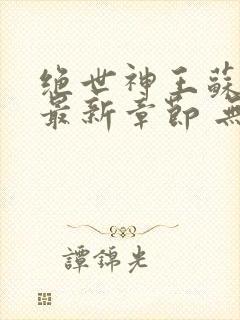 绝世神王蘇
最新章節 無
譚錦光